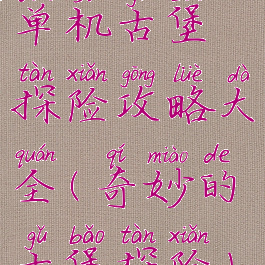 单机古堡
tàn xiǎn gōng lüè dà
探险攻略大
quán qí miào de
全(奇妙的
gǔ bǎo tàn xiǎn
古堡探险)